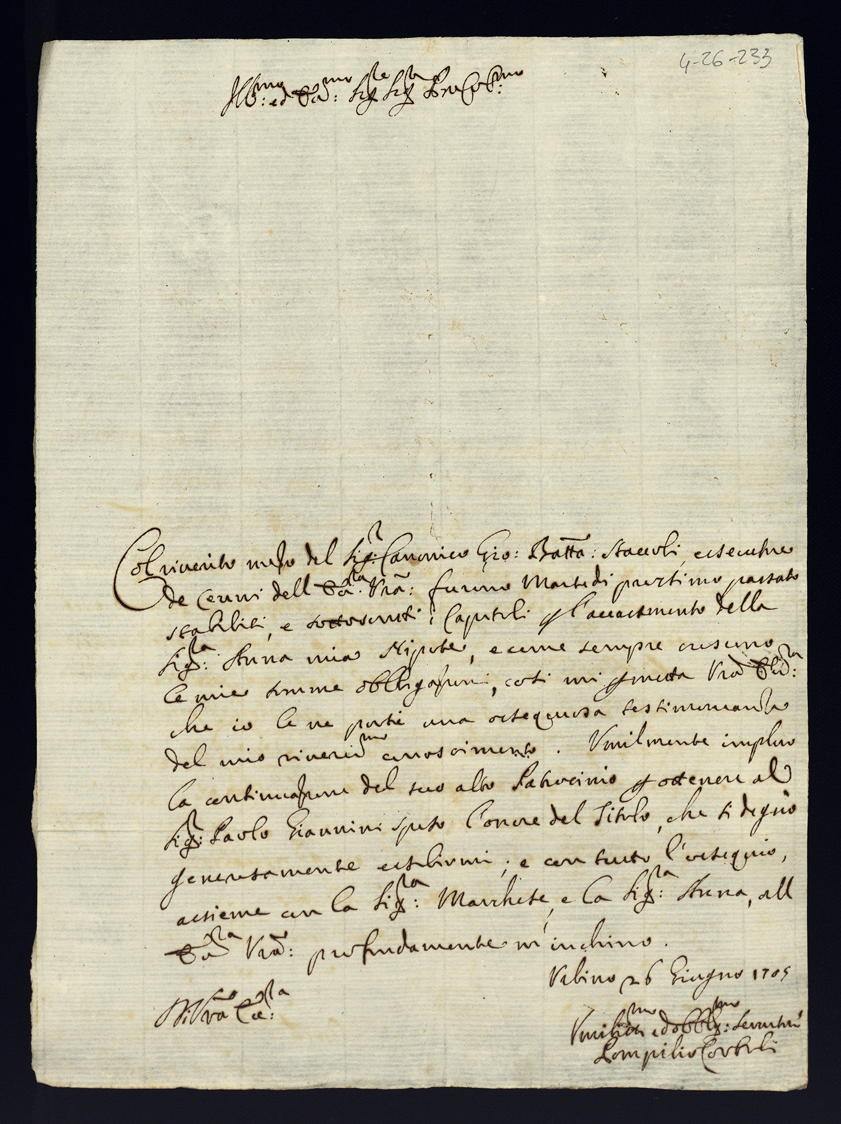 4-26-233
Ill.mo ed Ecc.mo Sig.re Sig.r P.rone Col.mo
Col riverito mezzo del Sig.r Canonico Gio: Batta: Staccoli, essecutore
de cenni dell'Ecc.za V.ra: furono Martedi prossimo passato
stabiliti, e sottoscritti i Capitoli p l'accasamento della
Sig.ra: Anna mia Nipote, e come sempre crescono
le mie somme obbligazioni, così mi permetta V.ra Ecc.za:
che io le ne porti una ossequiosa testimonianza
del mio riverent.mo conoscimento. Umilmente imploro
la continuazione del suo alto Patrocinio p ottenere al
Sig.r: Paolo Giannini sposo l'onore del Titolo, che si degnò
generosamente essibirmi; e con tutto l'ossequio,
assieme con la Sig.ra: Marchese, e la Sig.ra: Anna, all
Ecc.za V.ra: profondamente m'inchino.
Urbino 26 Giugno 1705
Di V.ra Ecc.za:
Umiliss.mo ed obblig.mo: Servitore
Pompilio Corboli